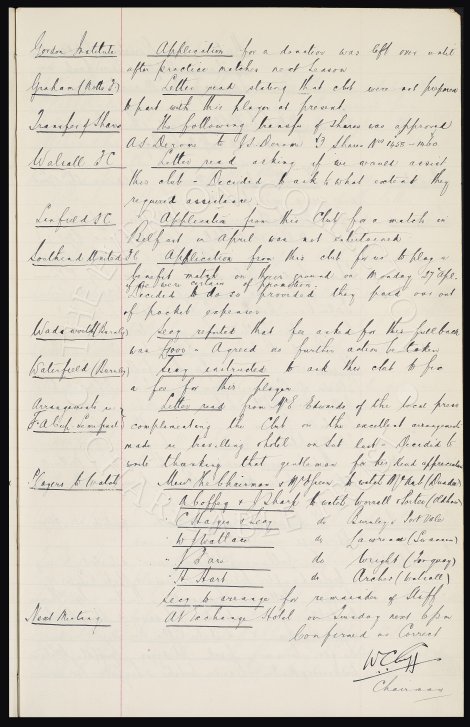 Gordon Institute Application for a donation was left over until
after practice matches next season
Graham (Notts F.) Letter read stating that club were not prepared
to part with this player at present.
Transfer of Shares The following transfer of shares was approved
A.S. to J.S. 3 Shares Nos 1458 - 1460
Walsall F.C. Letter read asking if we would assist
this club - Decided to ask to what extent they
required assistance.
Linfield F.C. Application from this Club for a match in
Belfast in April was not entertained
Southend United F.C. Application from this club for us to play a
benefit match on their ground on Monday 27th Apl.
if we were certain of promotion.
Decided to do so provided they paid our out
of pocket expenses
Wadsworth (Barnsley) Secy reported that fee asked for this full back
was £3000 - Agreed no further action be taken
Waterfield (Burnley) Secy instructed to ask this club to fix
a fee for this player
Arrangements re Letter read from Mr E Edwards of the local press
F.A. Cup semi final complimenting the Club on the excellent arrangements
made re travelling & hotel on Sat last - Decided to
write thanking that gentleman for his kind appreciation
Players to Watch Messrs The Chairman & Mr Green to watch (Dundee)
" A Coffey & J Sharp to watch Worrall & Porter (Oldham)
" C Hayes & Secy do Burnley v Port Vale
" W J Wallace do Lawrence (Swansea)
" do Wright (Torquay)
" H Hart do Archer (Walsall)
Secy to arrange for remainder of Staff
Next Meeting At Exchange Hotel on Tuesday next 6pm
Confirmed as Correct
W.C. Cuff
Chairman